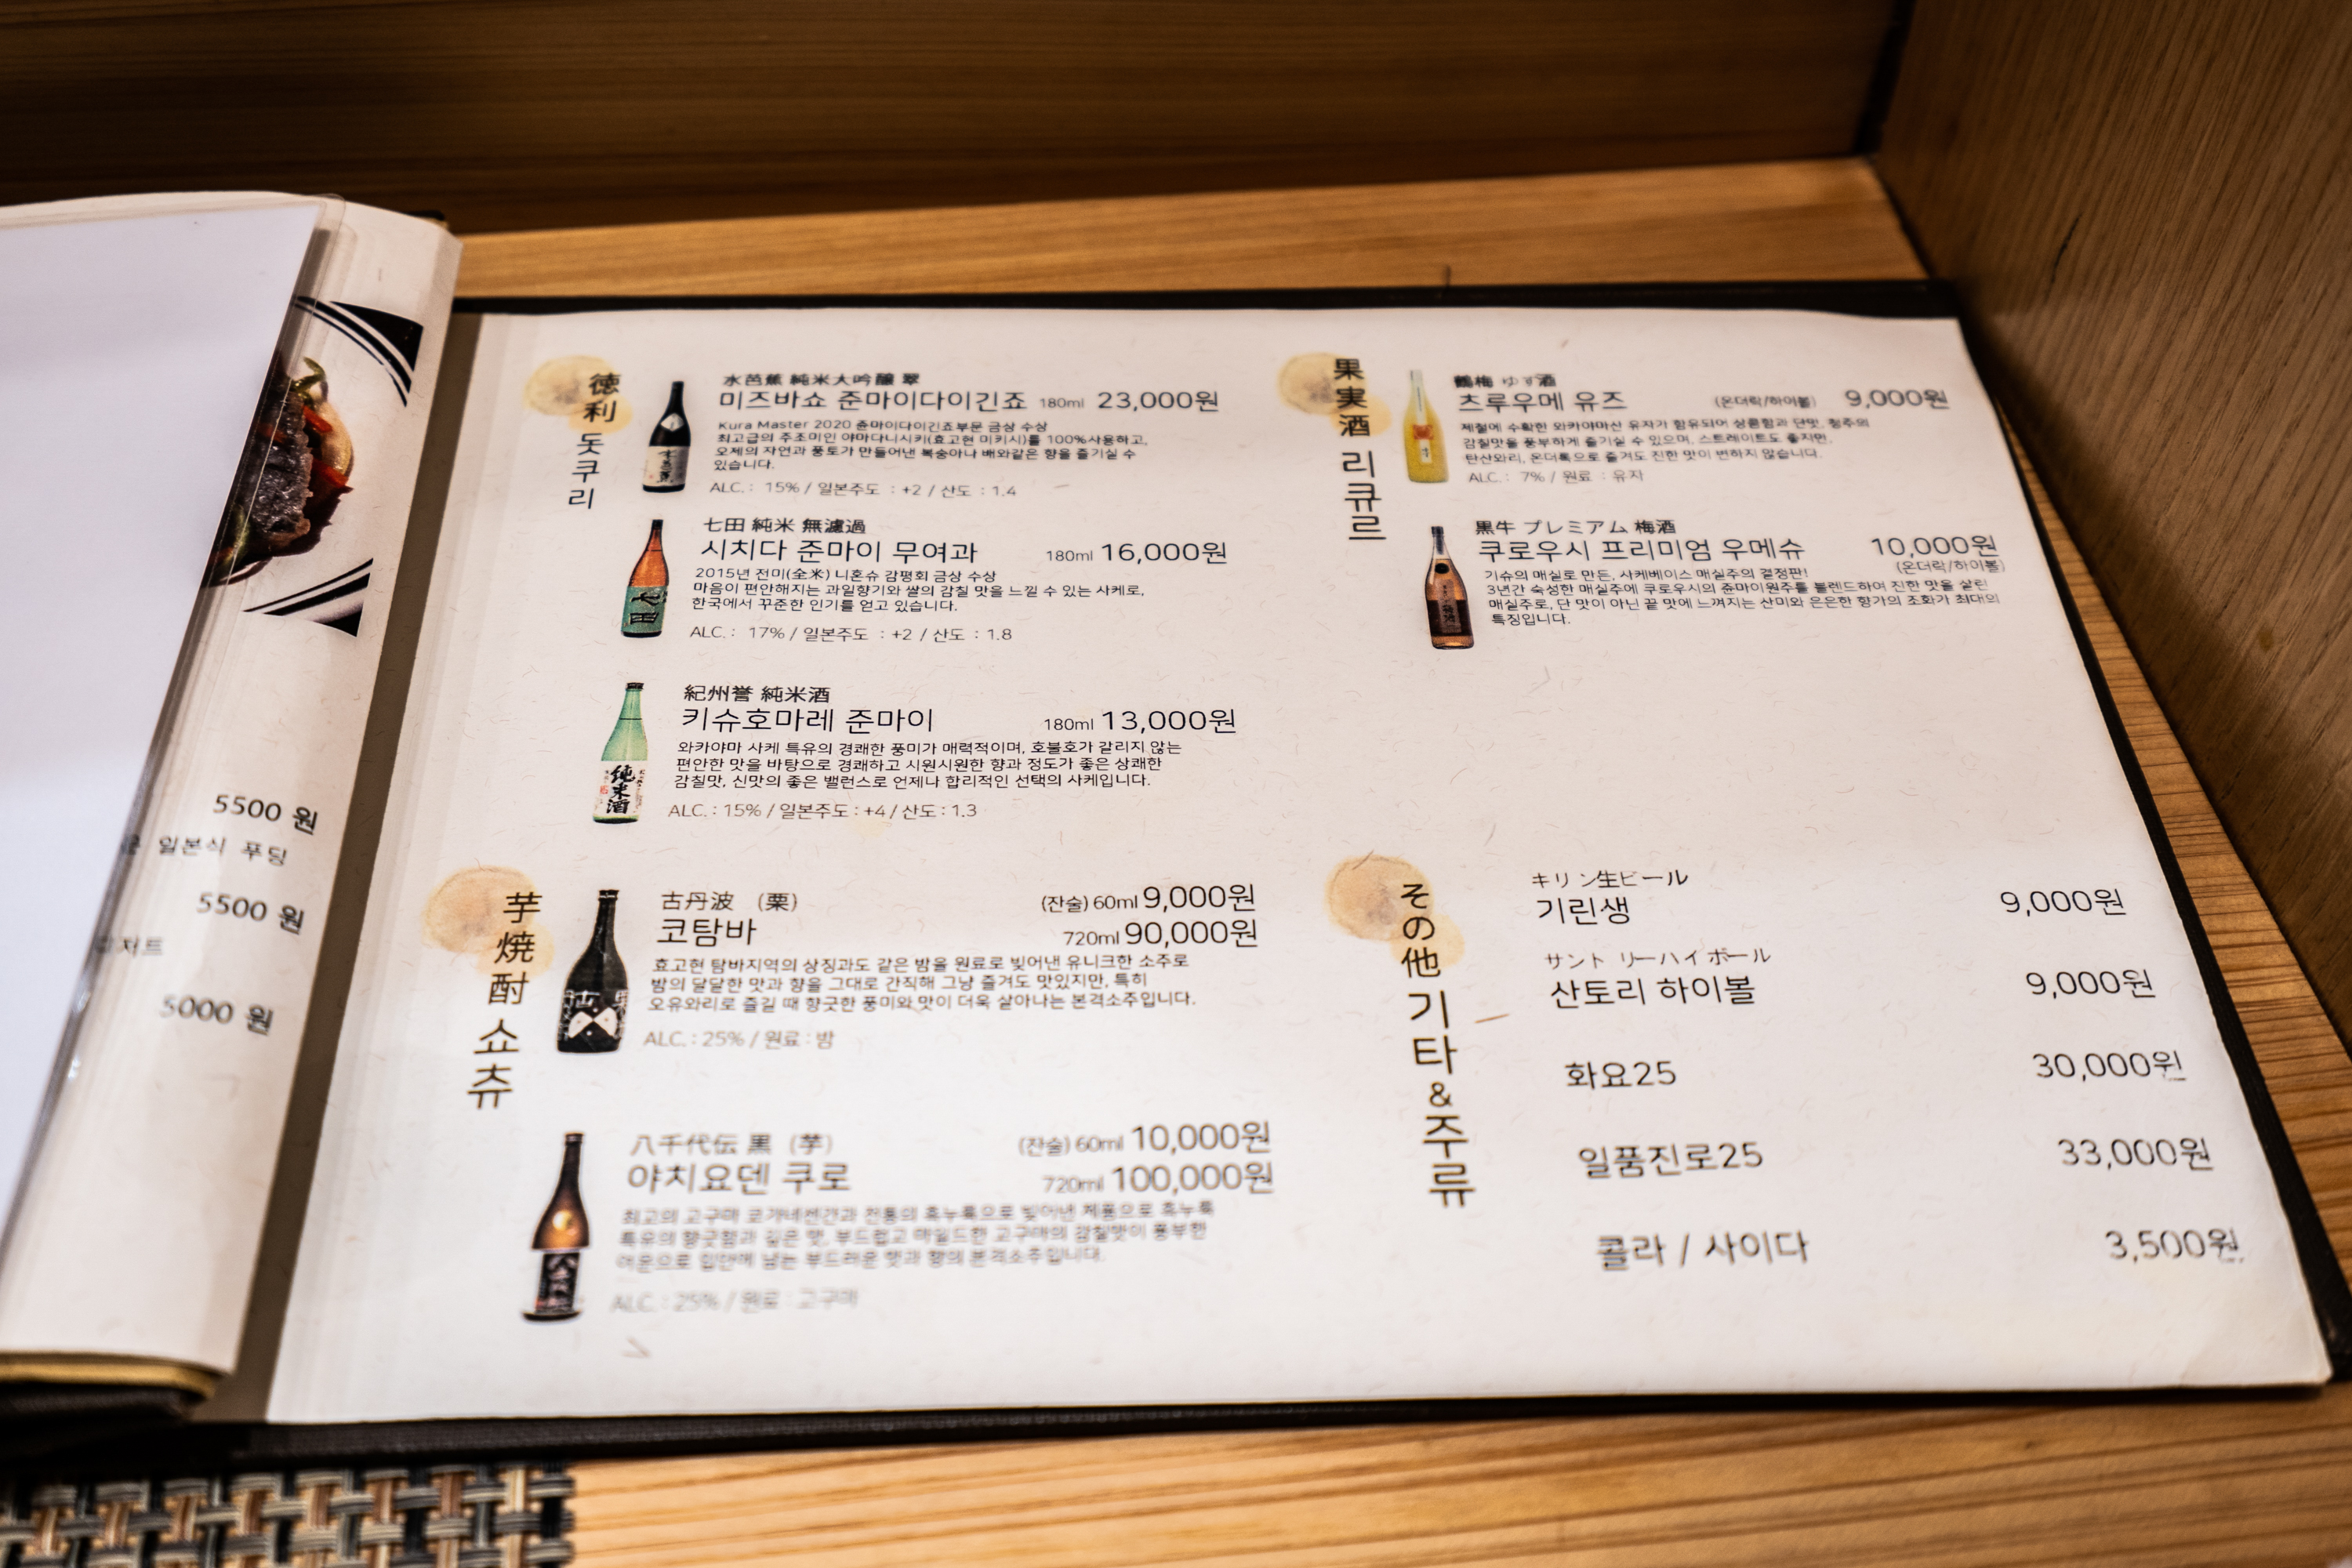 5500 원
일본식 푸딩
5500 원
5000 원
徳利 돗쿠리
水芭蕉 純米大吟醸 翠
미즈바쇼 준마이다이긴죠 180ml 23,000원
Kura Master 2020 쥰마이다이긴죠부문 금상 수상
최고급의 주조미인 야마다니시키(효고현 미키시)를 100%사용하고,
오제의 자연과 풍토가 만들어낸 복숭아나 배와같은 향을 즐기실 수
있습니다.
ALC. : 15% / 일본주도 : +2 / 산도 : 1.4
七田 純米 無濾過
시치다 준마이 무여과 180ml 16,000원
2015년 전미(全米) 니혼슈 감평회 금상 수상
마음이 편안해지는 과일향기와 쌀의 감칠 맛을 느낄 수 있는 사케로,
한국에서 꾸준한 인기를 얻고 있습니다.
ALC. : 17% / 일본주도 : +2 / 산도 : 1.8
紀州誉 純米酒
키슈호마레 준마이 180ml 13,000원
와카야마 사케 특유의 경쾌한 풍미가 매력적이며, 호불호가 갈리지 않는
편안한 맛을 바탕으로 경쾌하고 시원시원한 향과 정도가 좋은 상쾌한
감칠맛, 신맛의 좋은 밸런스로 언제나 합리적인 선택의 사케입니다.
ALC. : 15% / 일본주도 : +4 / 산도 : 1.3
純米酒
芋焼酎 쇼츄
古丹波 (栗)
(잔술) 60ml 9,000원
코탐바
720ml 90,000원
효고현 탐바지역의 상징과도 같은 밤을 원료로 빚어낸 유니크한 소주로
밤의 달달한 맛과 향을 그대로 간직해 그냥 즐겨도 맛있지만, 특히
오유와리로 즐길 때 향긋한 풍미와 맛이 더욱 살아나는 본격소주입니다.
ALC. : 25% / 원료 : 밤
八千代伝 黒 (芋)
(잔술) 60ml 10,000원
야치요덴 쿠로
720ml 100,000원
최고의 고구마 코가네센간과 전통의 흑누룩으로 빚어낸 제품으로 흑누룩
특유의 향긋함과 깊은 맛, 부드럽고 마일드한 고구마의 감칠맛이 풍부한
여운으로 입안에 남는 부드러운 맛과 향의 본격소주입니다.
ALC. : 25% / 원료 : 고구마
果実酒 리큐르
鶴梅 ゆず酒
츠루우메 유즈 (온더락/하이볼) 9,000원
제철에 수확한 와카야마산 유자가 함유되어 상큼함과 단맛, 청주의
감칠맛을 풍부하게 즐기실 수 있으며, 스트레이트도 좋지만,
탄산와리, 온더록으로 즐겨도 진한 맛이 변하지 않습니다.
ALC. : 7% / 원료 : 유자
黒牛 プレミアム 梅酒
쿠로우시 프리미엄 우메슈 10,000원
(온더락/하이볼)
기슈의 매실로 만든, 사케베이스 매실주의 결정판!
3년간 숙성한 매실주에 쿠로우시의 쥰마이원주를 블렌드하여 진한 맛을 살린
매실주로, 단 맛이 아닌 끝 맛에 느껴지는 산미와 은은한 향가의 조화가 최대의
특징입니다.
その他 기타&주류
キリン生ビール
기린생 9,000원
サントリーハイボール
산토리 하이볼 9,000원
화요25 30,000원
일품진로25 33,000원
콜라 / 사이다 3,500원